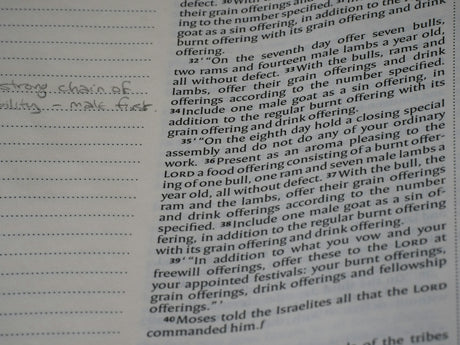 strong chain of
– male first.
defect. 30
their grain offerings and
ing to the number specified. 31
goat as a sin offering, in addition to the regular
burnt offering with its grain offering and drink
offering.
32 ‘ “On the seventh day offer seven bulls,
two rams and fourteen male lambs a year old,
all without defect. 33With the bulls, rams and
lambs, offer their grain offerings and drink
offerings according to the number specified.
34Include one male goat as a sin offering, in
addition to the regular burnt offering with its
grain offering and drink offering.
35‘ “On the eighth day hold a closing special
assembly and do not do any of your ordinary
work. 36Present as an aroma pleasing to the
LORD a food offering consisting of a burnt offer-
ing of one bull, one ram and seven male lambs a
year old, all without defect. 37With the bull, the
ram and the lambs, offer their grain offerings
and drink offerings according to the number
specified. 38Include one male goat as a sin of-
fering, in addition to the regular burnt offering
with its grain offering and drink offering.
39‘ “In addition to what you vow and your
freewill offerings, offer these to the LORD at
your appointed festivals: your burnt offerings,
grain offerings, drink offerings and fellowship
offerings.” ’
40Moses told the Israelites all that the LORD
commanded him.f
of the tribes